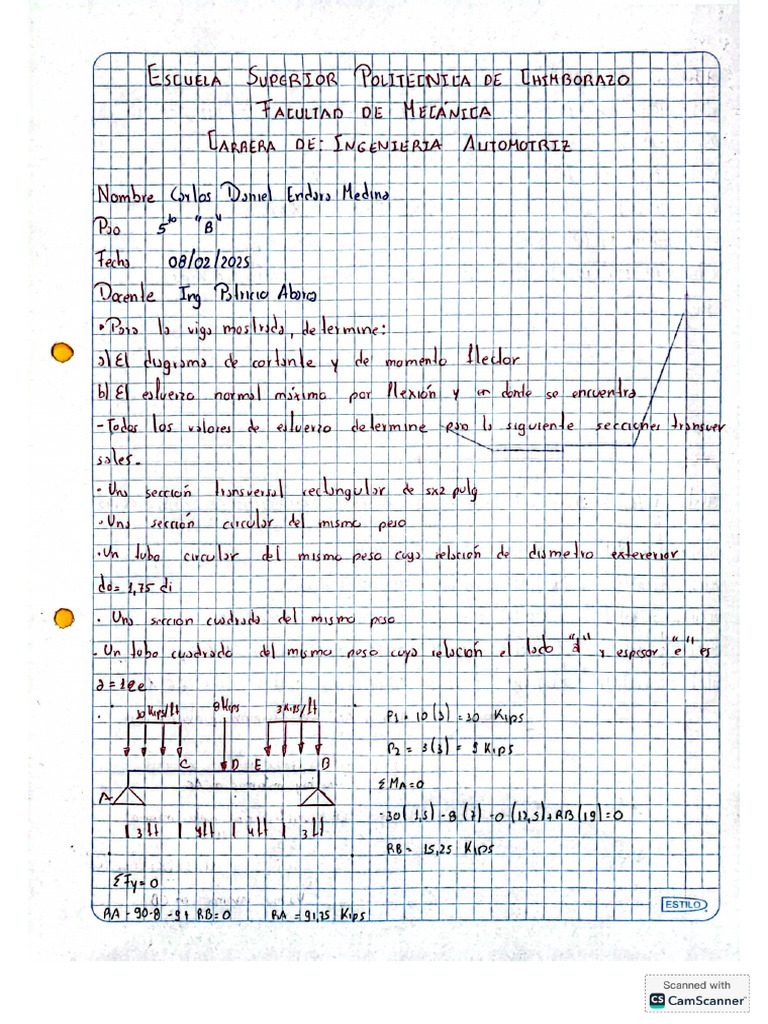 ESCUELA SUPERIOR POLITECNICA DE CHIMBORAZO
FACULTAD DE MECÁNICA
CARRERA DE: INGENIERIA AUTOMOTRIZ
Nombre Carlos Daniel Endara Medina
Pao 5to "B"
Fecha 08/02/2025
Docente Ing Patricio Abarca
• Para la viga mostrada, determine:
a) El diagrama de cortante y de momento flector
b) El esfuerzo normal máximo por flexión y en donde se encuentra
- Todos los valores de esfuerzo determine para la siguiente secciones transver
sales.-
· Una sección transversal rectangular de 5x2 pulg
· Una sección circular del mismo peso
· Un tubo circular del mismo peso cuya relación de diametro extererior
do = 1,75 di
· Una sección cuadrada del mismo peso
- Un tubo cuadrado del mismo peso cuya relación el lado "a" y espesor "e" es
a = 12e
30 Kips/ft 8 Kips 3 Kips/ft
C D E B
A
3 ft 4ft 4ft 3 ft
P1 = 10(3) = 30 Kips
P2 = 3(3) = 9 Kips
ΣMA = 0
-30(1,5) - 8(7) - 0(12,5) + RB(19) = 0
RB = 15,25 Kips
ΣFy = 0
RA - 90 - 8 - 9 + RB = 0 RA = 91,75 Kips
ESTILO
Scanned with
CS CamScanner